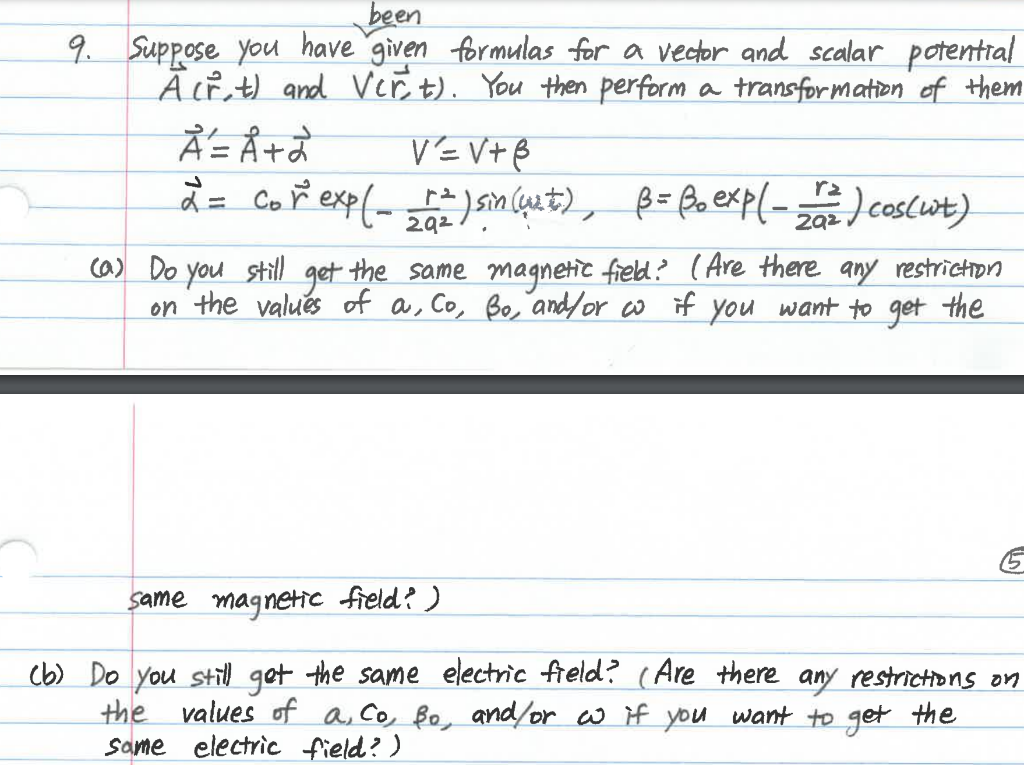 been
9. Suppose you have given formulas for a vector and scalar potential
A⃗(r⃗,t) and V(r⃗,t). You then perform a transformation of them
A⃗′ = A⃗ + α⃗ V′ = V + β
α⃗ = C₀ r⃗ exp(- r²/2a²) sin(ωt), β = β₀ exp(- r²/2a²) cos(ωt)
(a) Do you still get the same magnetic field? (Are there any restriction
on the values of a, C₀, β₀, and/or ω if you want to get the
5
same magnetic field?)
(b) Do you still get the same electric field? (Are there any restrictions on
the values of a, C₀, β₀, and/or ω if you want to get the
same electric field?)